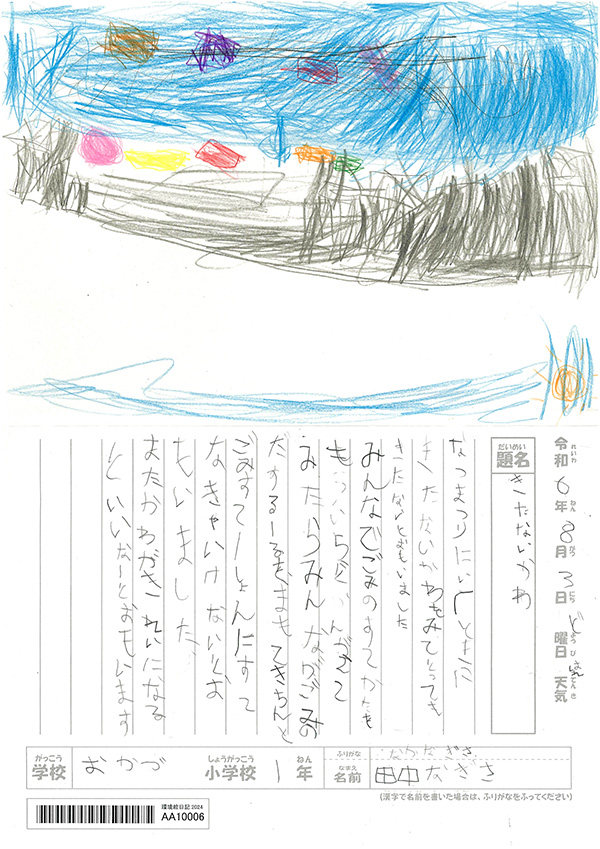 令和6年8月3日 ど曜日 天気 はれ
れいわ ねん がつ にち ようび てんき
だいめい
題名
きたないかわ
なつまつりにいくとまた
きたないかわをみてとっても
きたないとおもいました
みんなでごみのすてかたを
もういちどかんがえて
みたらみんながごみの
だするーるをまもてきちんと
ごみすてーしょんにすて
なきゃいけないとお
もいました
またかわがきれいになる
といいなーとおもいます
がっこう
学校
おかづ
しょうがっこう
小学校
1
ねん
年
ふりがな
たなかなぎさ
なまえ
名前
田中なぎさ
(漢字で名前を書いた場合は、ふりがなをふってください)
環境絵日記2024
AA10006